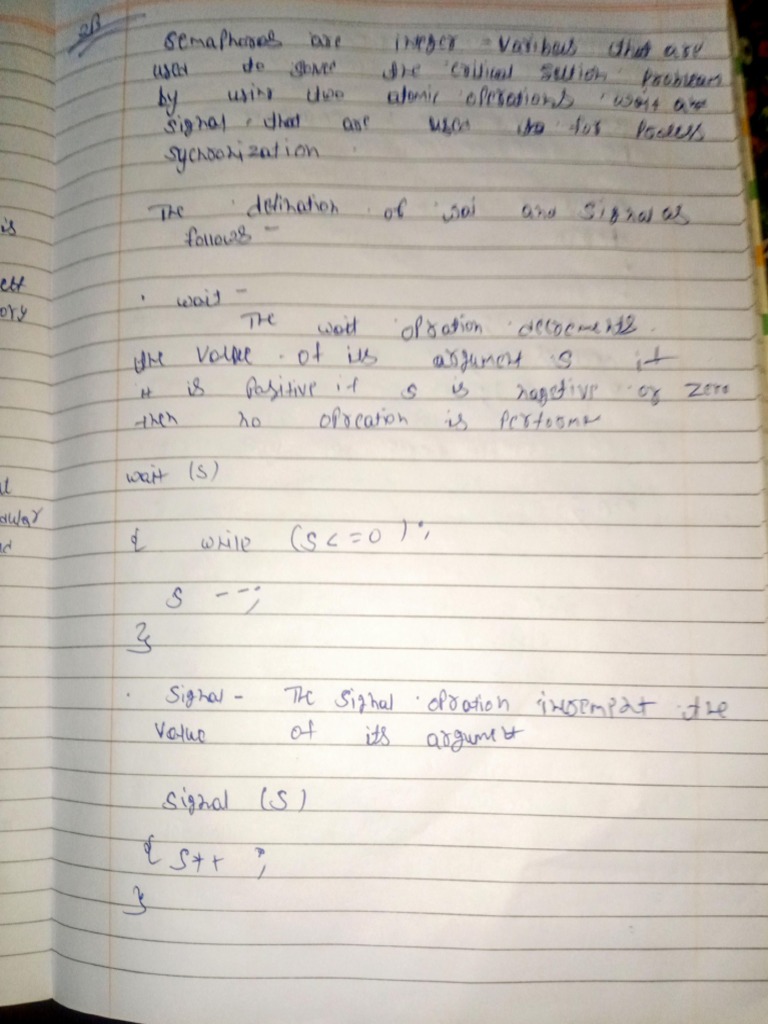 2B
Semaphores are integer varibles that are
user to solve the critical section problem
by using two atomic operations wait and
signal that are user for process
sychronization
The defination of wai and signal as
follows -
. wait -
The wait opration decrements
the value of its argument s if
it is positive if s is nagetive or zero
then no opreation is performe
wait (S)
{ while (S <= 0);
S --;
}
. Signal - The signal opration increment the
value of its argument
Signal (S)
{ S++ ;
}
is
ett
ory
dular